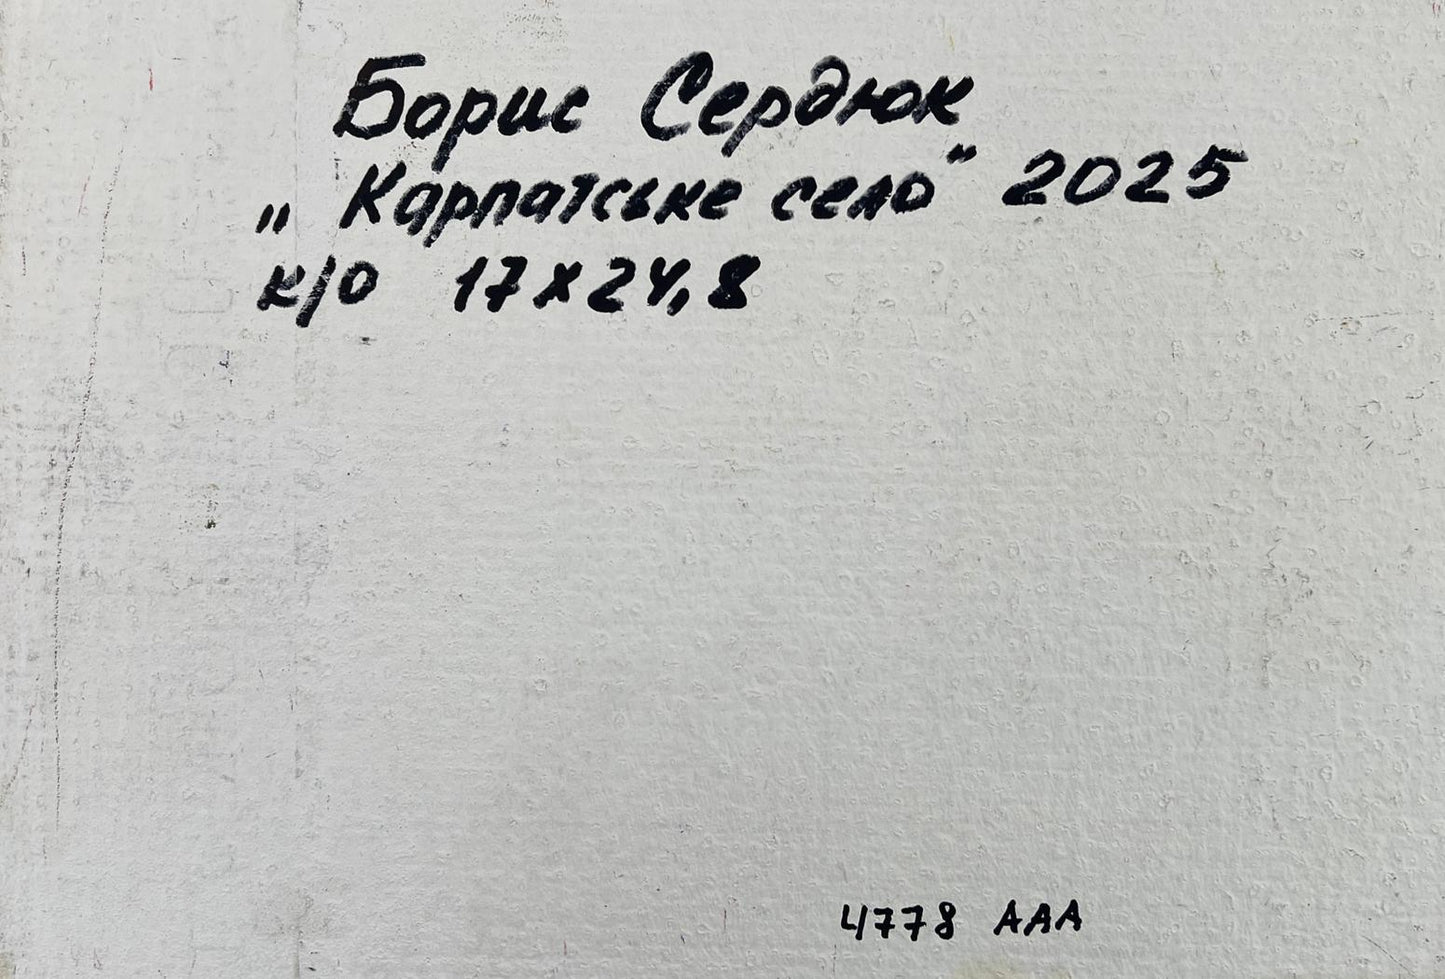 Борис Сердюк
„Карпатське село" 2025
к/о 17х24,8
4778 ААА